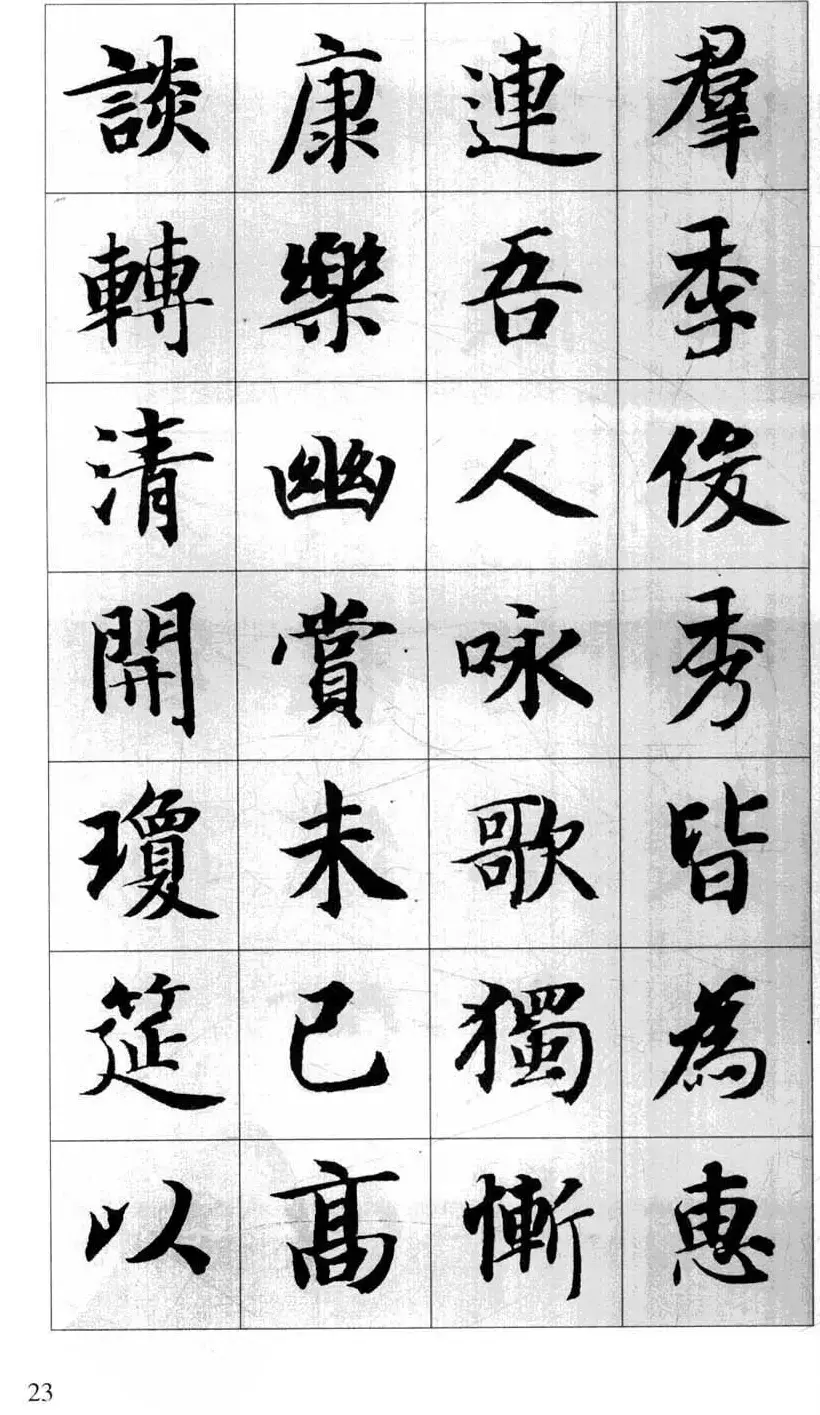 羣季俊秀皆為惠
連吾人咏歌獨慚
康樂幽賞未已高
談轉清開瓊筵以
23